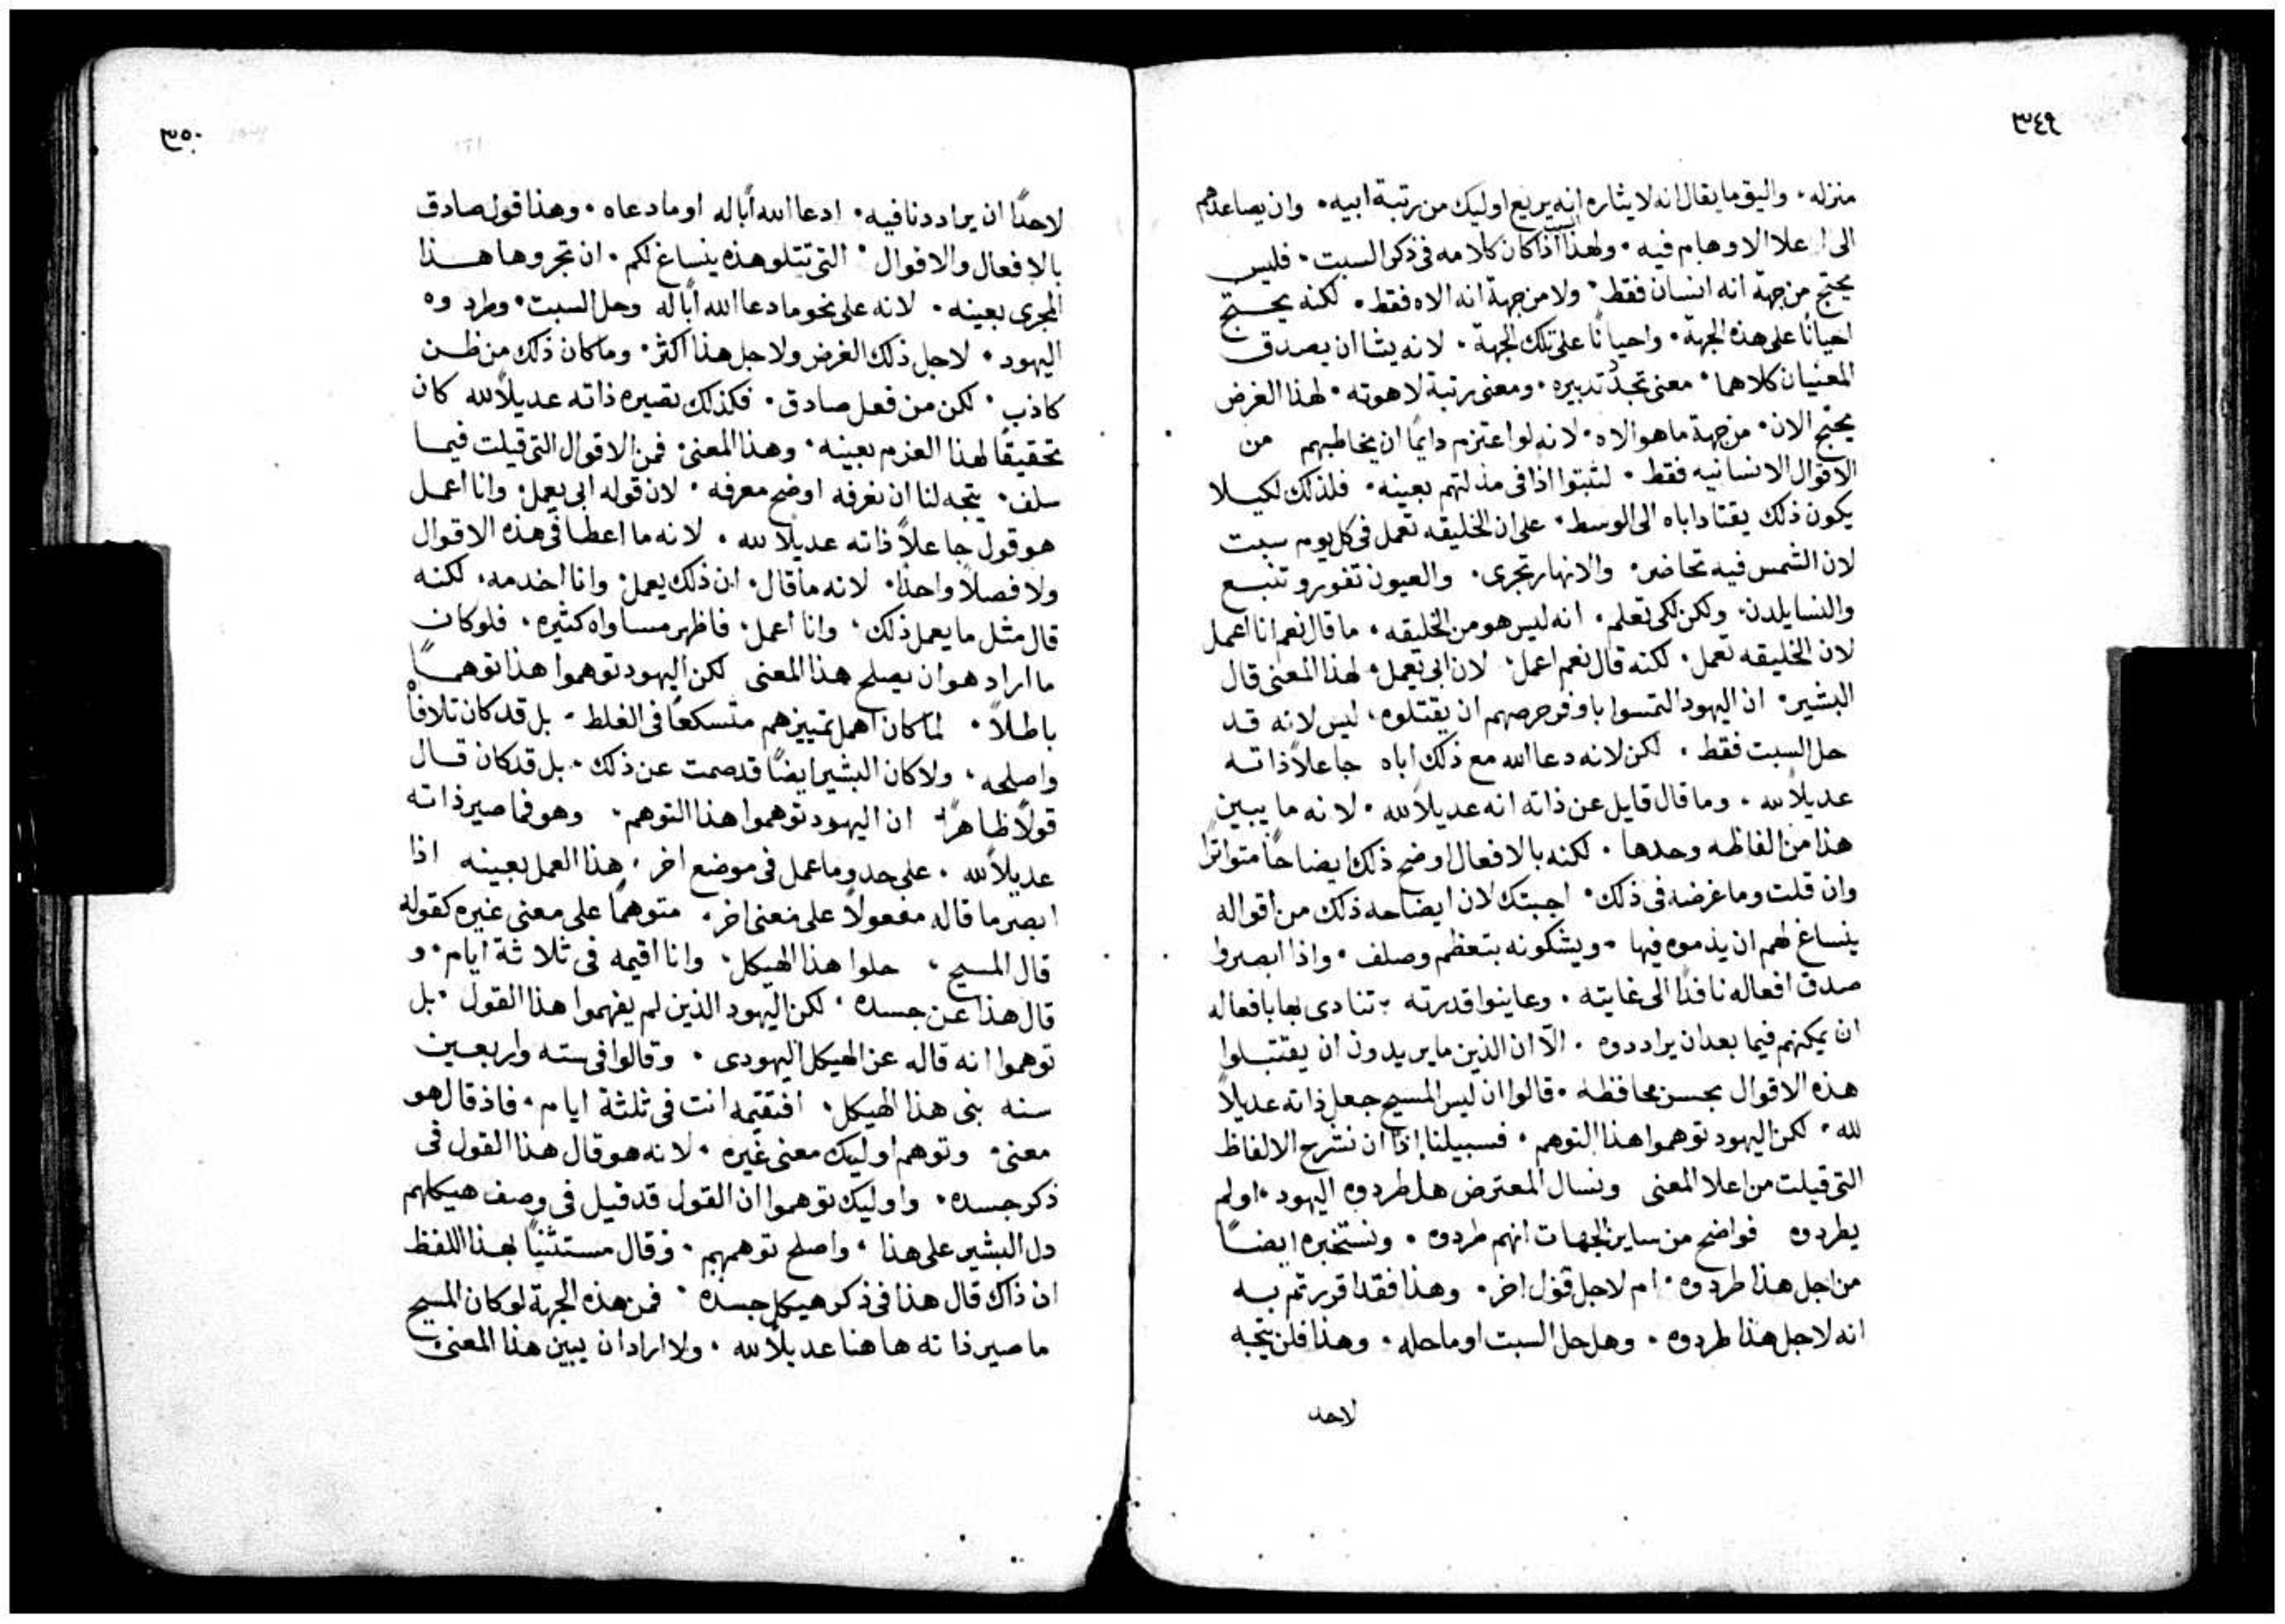 ٣٤٩
منزله ٠ واليق ما يقال انه لايثاره انه يريع اوليك من رتبة ابيه ٠ وان يصاعدهم
الى اعلا الاوهام فيه ٠ ولهذا اذا كان كلامه فى ذكر السبت ٠ فليس
يحتج من جهة انه انسان فقط ٠ ولا من جهة انه الاه فقط ٠ لكنه يحتج
احيانًا على هذه الجهة ٠ واحيانًا على تلك الجهة ٠ لانه يشا ان يصدق
المعنيان كلاهما ٠ معنى تجدد تدبيره ٠ ومعنى رتبة لاهوته ٠ لهذا الغرض
يحتج الان ٠ من جهة ما هو الاه ٠ لانه لو اعتزم دايمًا ان يخاطبهم من
الاقوال الانسانيه فقط ٠ لثبتوا اذا فى مذلتهم بعينه ٠ فلذلك لكيلا
يكون ذلك يقتاد اباه الى الوسط ٠ على ان الخليقه تعمل فى كل يوم سبت
لان الشمس فيه تحاضر ٠ والانهار تجرى ٠ والعيون تفور وتنبع
والنسا يلدن ٠ ولكن لكى تعلم ٠ انه ليس هو من الخليقه ٠ ما قال نعم انا اعمل
لان الخليقه تعمل ٠ لكنه قال نعم اعمل ٠ لان ابى يعمل ٠ لهذا المعنى قال
البشير ٠ ان اليهود التمسوا باوفر حرصهم ان يقتلوه ٠ ليس لانه قد
حل السبت فقط ٠ لكن لانه دعا الله مع ذلك اباه جاعلاً ذاته
عديلاً لله ٠ وما قال قايل عن ذاته انه عديلاً لله ٠ لانه ما يبين
هذا من الفاظه وحدها ٠ لكنه بالافعال اوضح ذلك ايضاحًا متواترًا
وان قلت وما غرضه فى ذلك ٠ اجبتك لان ايضاحه ذلك من اقواله
ينساغ لهم ان يذموه فيها ٠ ويشكونه بتعظم وصلف ٠ واذا ابصروا
صدق افعاله نافذًا الى غايته ٠ وعاينوا قدرته ٠ تنادى بها بافعاله
ان يمكنهم فيما بعد ان يراددوه ٠ الاّ ان الذين ما يريدون ان يقتبلوا
هذه الاقوال بحسن محافظه ٠ قالوا ان ليس المسيح جعل ذاته عديلاً
لله ٠ لكن اليهود توهموا هذا التوهم ٠ فسبيلنا اذًا ان نشرح الالفاظ
التى قيلت من اعلا المعنى ونسال المعترض هل طردوه اليهود ٠ اولم
يطردوه فواضح من ساير الجهات انهم طردوه ٠ ونستخبره ايضًا
من اجل هذا طردوه ٠ ام لاجل قول اخر ٠ وهذا فقد اقررتم به
انه لاجل هذا طردوه ٠ وهل حل السبت او ماحله ٠ وهذا فلن يتجه
لاحد
٣٥٠
لاحدًا ان يراددنا فيه ٠ ادعا الله اباله او مادعاه ٠ وهذا قول صادق
بالافعال والاقوال ٠ التى تتلو هذه ينساغ لكم ٠ ان تجروها هذا
المجرى بعينه ٠ لانه على نحو ما دعا الله اباله وحل السبت ٠ وطردوه
اليهود ٠ لاجل ذلك الغرض ولاجل هذا اكثر ٠ وما كان ذلك من ظن
كاذب ٠ لكن من فعل صادق ٠ فكذلك تصيره ذاته عديلاً لله كان
تحقيقًا لهذا العزم بعينه ٠ وهذا المعنى ٠ فمن الاقوال التى قيلت فيما
سلف ٠ يتجه لنا ان نعرفه اوضح معرفه ٠ لان قوله ابى يعمل ٠ وانا اعمل
هو قول جاعلاً ذاته عديلاً لله ٠ لانه ما اعطا فى هذه الاقوال
ولا فصلاً واحدًا ٠ لانه ما قال ٠ ان ذلك يعمل ٠ وانا اخدمه ٠ لكنه
قال مثل ما يعمل ذلك ٠ وانا اعمل ٠ فاظهر مساواه كثيره ٠ فلو كان
ما اراد هو ان يصلح هذا المعنى لكن اليهود توهموا هذا توهمًا
باطلاً ٠ لما كان اهمل تمييزهم متسكعًا فى الغلط ٠ بل قد كان تلافاه
واصلحه ٠ ولا كان البشير ايضًا قد صمت عن ذلك ٠ بل قد كان قال
قولاً ظاهرًا ان اليهود توهموا هذا التوهم ٠ وهو فما صير ذاته
عديلاً لله ٠ على حدو ما عمل فى موضع اخر ٠ هذا العمل بعينه اذا
ابصر ما قاله مفعولاً على معنى اخر ٠ متوهمًا على معنى غيره كقوله
قال المسيح ٠ حلوا هذا الهيكل ٠ وانا اقيمه فى ثلاثة ايام ٠ و
قال هذا عن جسده ٠ لكن اليهود الذين لم يفهموا هذا القول ٠ بل
توهموا انه قاله عن الهيكل اليهودى ٠ وقالوا فى سته واربعين
سنه بنى هذا الهيكل ٠ افتقيمه انت فى ثلثة ايام ٠ فاذ قال هو
معنى ٠ وتوهم اوليك معنى غيره ٠ لانه هو قال هذا القول فى
ذكر جسده ٠ واوليك توهموا ان القول قد قيل فى وصف هيكلهم
دل البشير على هذا ٠ واصلح توهمهم ٠ وقال مستثنيًا بهذا اللفظ
ان ذاك قال هذا فى ذكر هيكل جسده ٠ فمن هذه الجهة لو كان المسيح
ما صير ذاته هاهنا عديلاً لله ٠ ولا اراد ان يبين هذا المعنى ٠